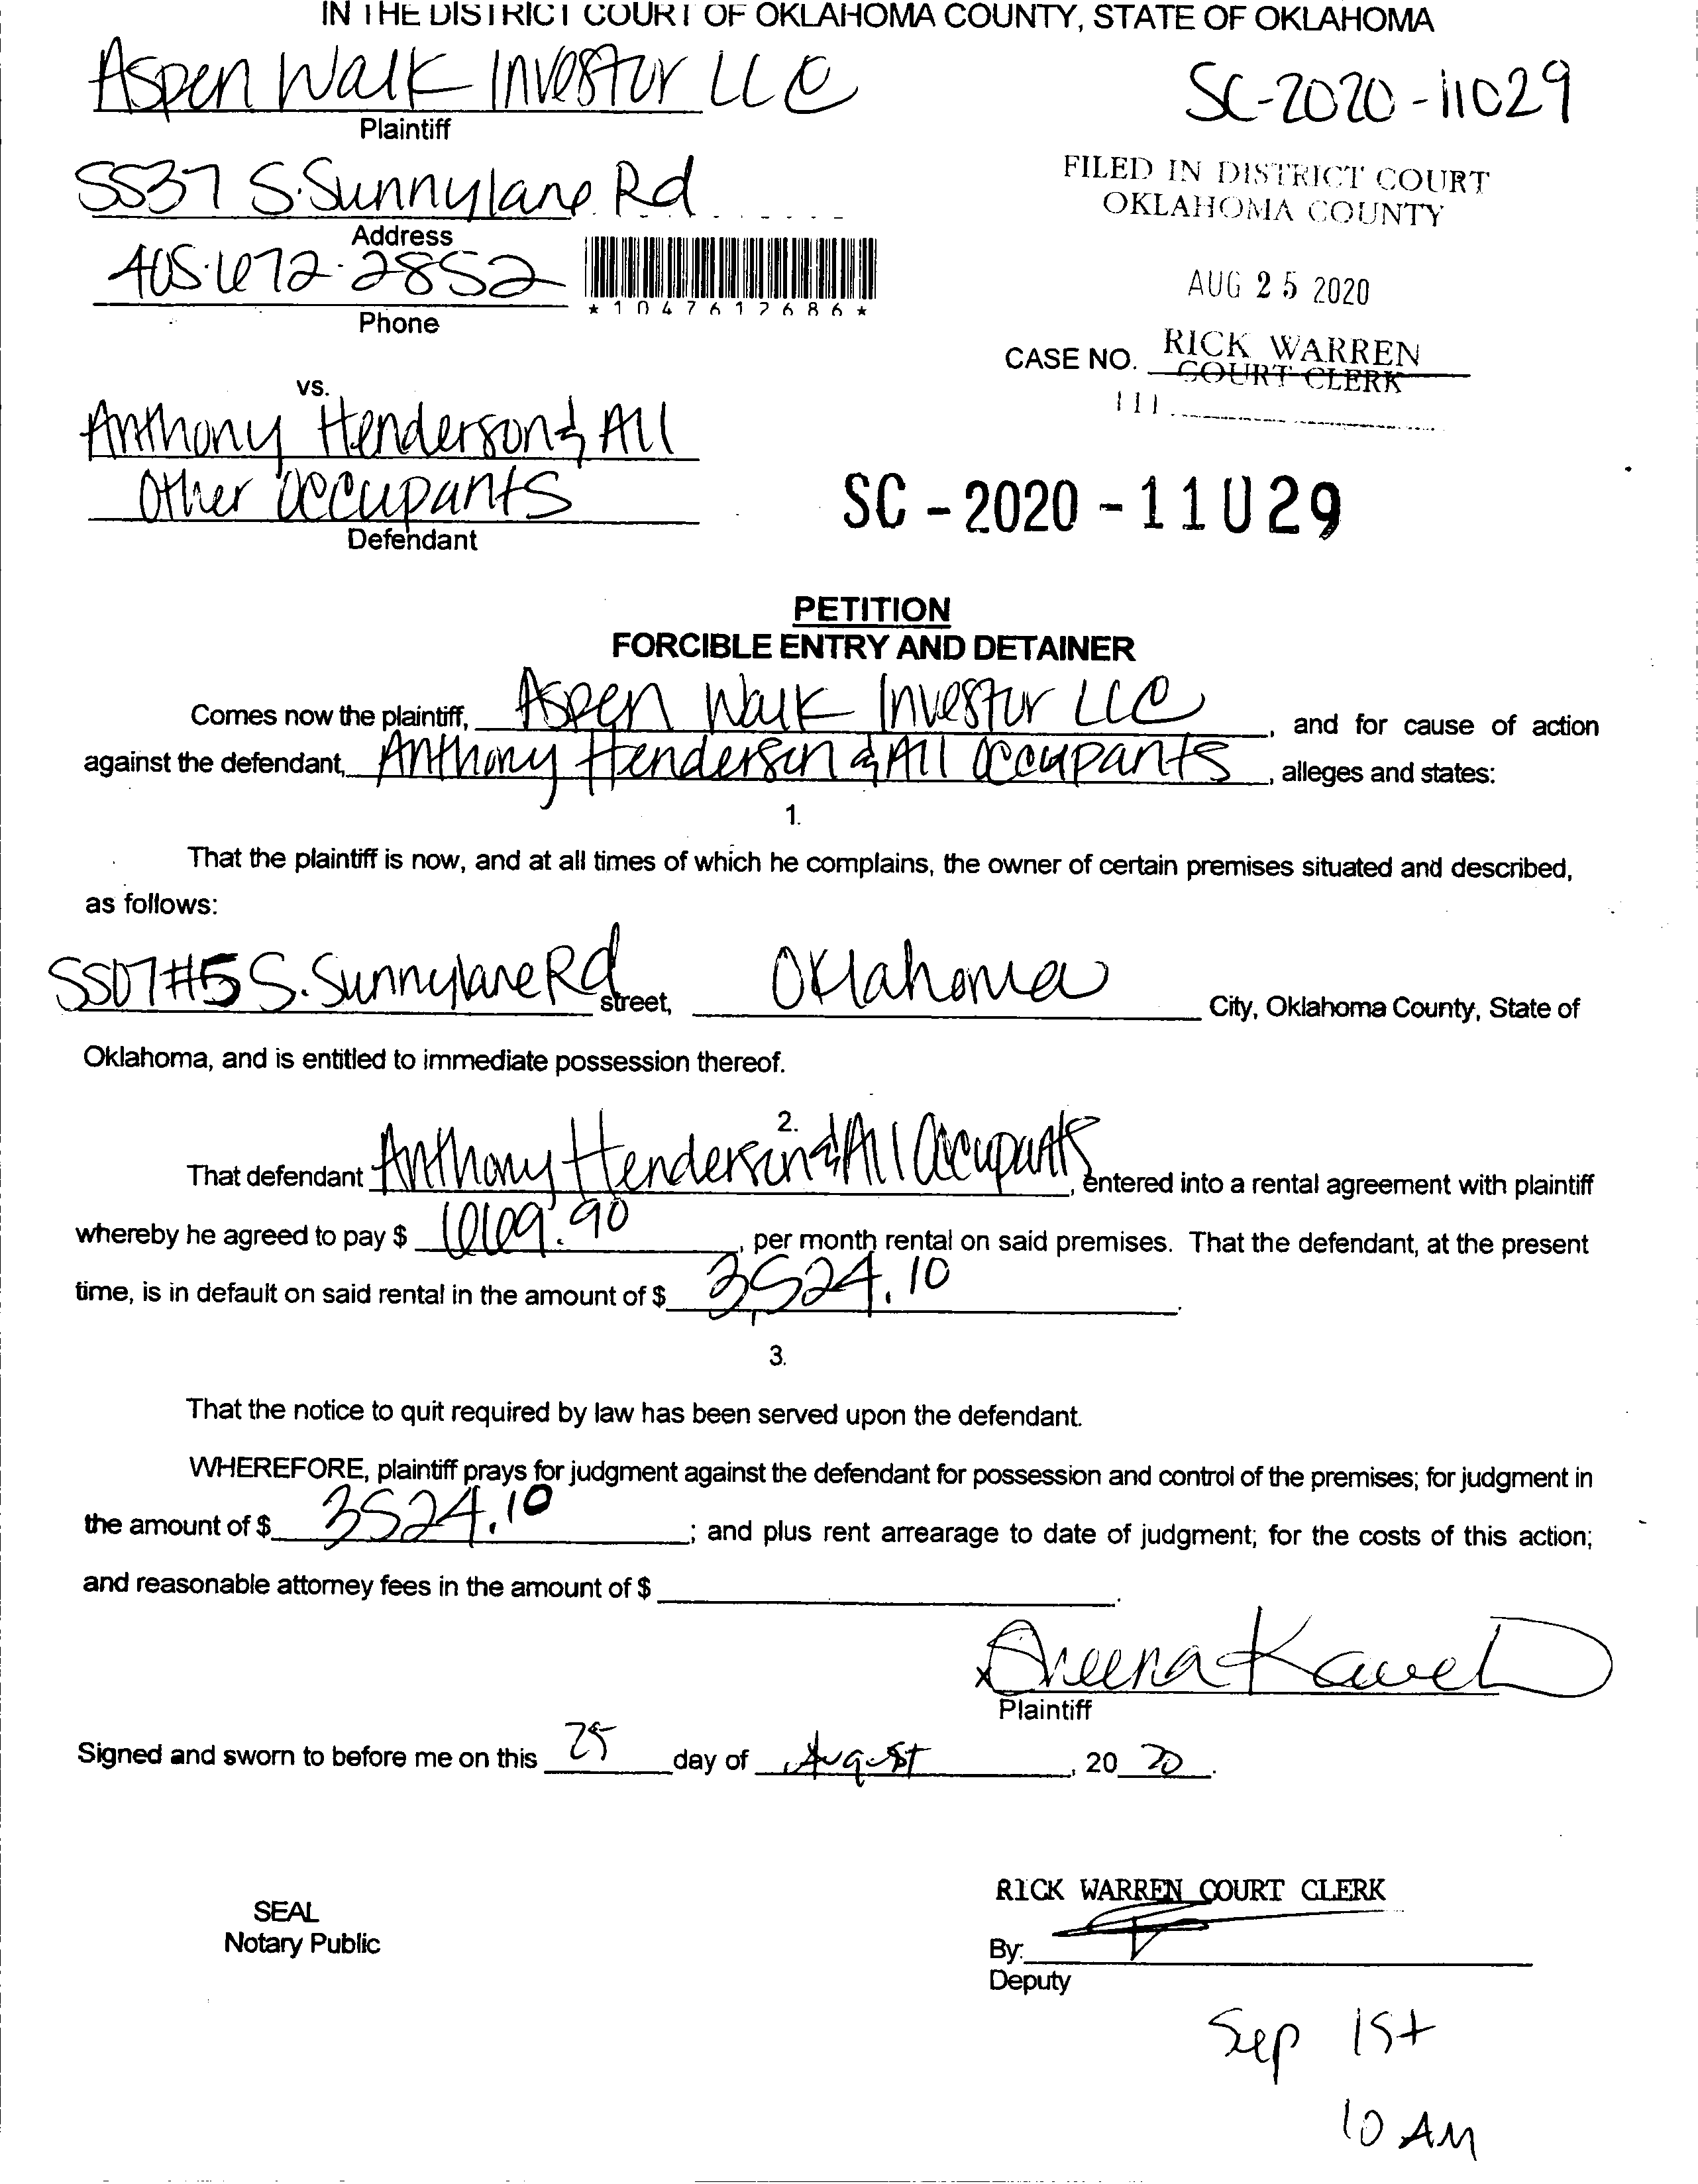 IN THE DISTRICT COURT OF OKLAHOMA COUNTY, STATE OF OKLAHOMA
Aspen Walk Investor LLC
SC-2020-11029
Plaintiff
5537 S. Sunnylane Rd
FILED IN DISTRICT COURT
OKLAHOMA COUNTY
Address
405.672.2852
*1047612686*
AUG 25 2020
Phone
CASE NO. RICK WARREN
COURT CLERK
111
vs.
Anthony Henderson & All
Other Occupants
SC-2020-11029
Defendant
PETITION
FORCIBLE ENTRY AND DETAINER
Comes now the plaintiff, Aspen Walk Investor LLC, and for cause of action
against the defendant, Anthony Henderson & All Occupants, alleges and states:
1.
That the plaintiff is now, and at all times of which he complains, the owner of certain premises situated and described,
as follows:
5507 #5 S. Sunnylane Rd street, Oklahoma City, Oklahoma County, State of
Oklahoma, and is entitled to immediate possession thereof.
2.
That defendant Anthony Henderson & All Occupants, entered into a rental agreement with plaintiff
whereby he agreed to pay $ 669.90, per month rental on said premises. That the defendant, at the present
time, is in default on said rental in the amount of $ 3,524.10.
3.
That the notice to quit required by law has been served upon the defendant.
WHEREFORE, plaintiff prays for judgment against the defendant for possession and control of the premises; for judgment in
the amount of $ 3524.10; and plus rent arrearage to date of judgment; for the costs of this action;
and reasonable attorney fees in the amount of $.
x Sheena
Plaintiff
Signed and sworn to before me on this 25 day of August, 20 20.
RICK WARREN COURT CLERK
SEAL
Notary Public
By:
Deputy
Sep 1st
10 AM